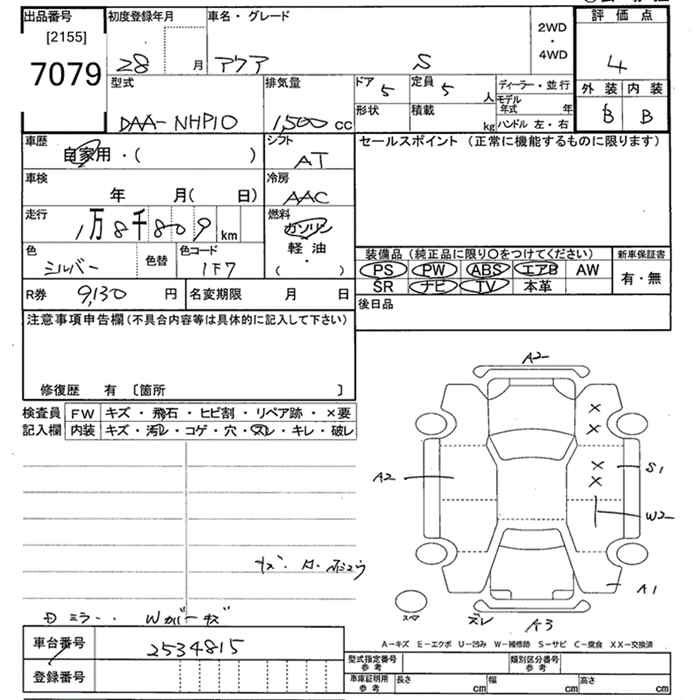 出品番号
[2155]
7079
初度登録年月
28 月
車名・グレード
アクア S
2WD
・
4WD
評価点
4
外装 内装
B B
型式
DAA-NHP10
排気量
1,500 cc
ドア 5
定員 5 人
形状
積載 kg
ディーラー・並行
モデル年式 年
ハンドル 左・右
車歴
自家用・( )
シフト
AT
セールスポイント (正常に機能するものに限ります)
車検
年 月( 日)
冷房
AAC
走行
1万8千809 km
燃料
ガソリン
軽油
・
( )
色
シルバー
色替
色コード
1F7
装備品 (純正品に限り○をつけてください)
新車保証書
PS PW ABS エアB AW
有・無
SR ナビ TV 本革
R券 9,130 円
名変期限 月 日
後日品
注意事項申告欄 (不具合内容等は具体的に記入して下さい)
修復歴 有 〔箇所 〕
検査員
記入欄
FW キズ・飛石・ヒビ割・リペア跡・×要
内装 キズ・汚レ・コゲ・穴・スレ・キレ・破レ
A2
A2
S1
W2
A1
スペア
ズレ
A3
ミラー
A-キズ E-エクボ U-凹み W-補修跡 S-サビ C-腐食 XX-交換済
車台番号
2534815
登録番号
型式指定番号
参考
類別区分番号
参考
車庫証明用
参考
長さ cm
幅 cm
高さ cm